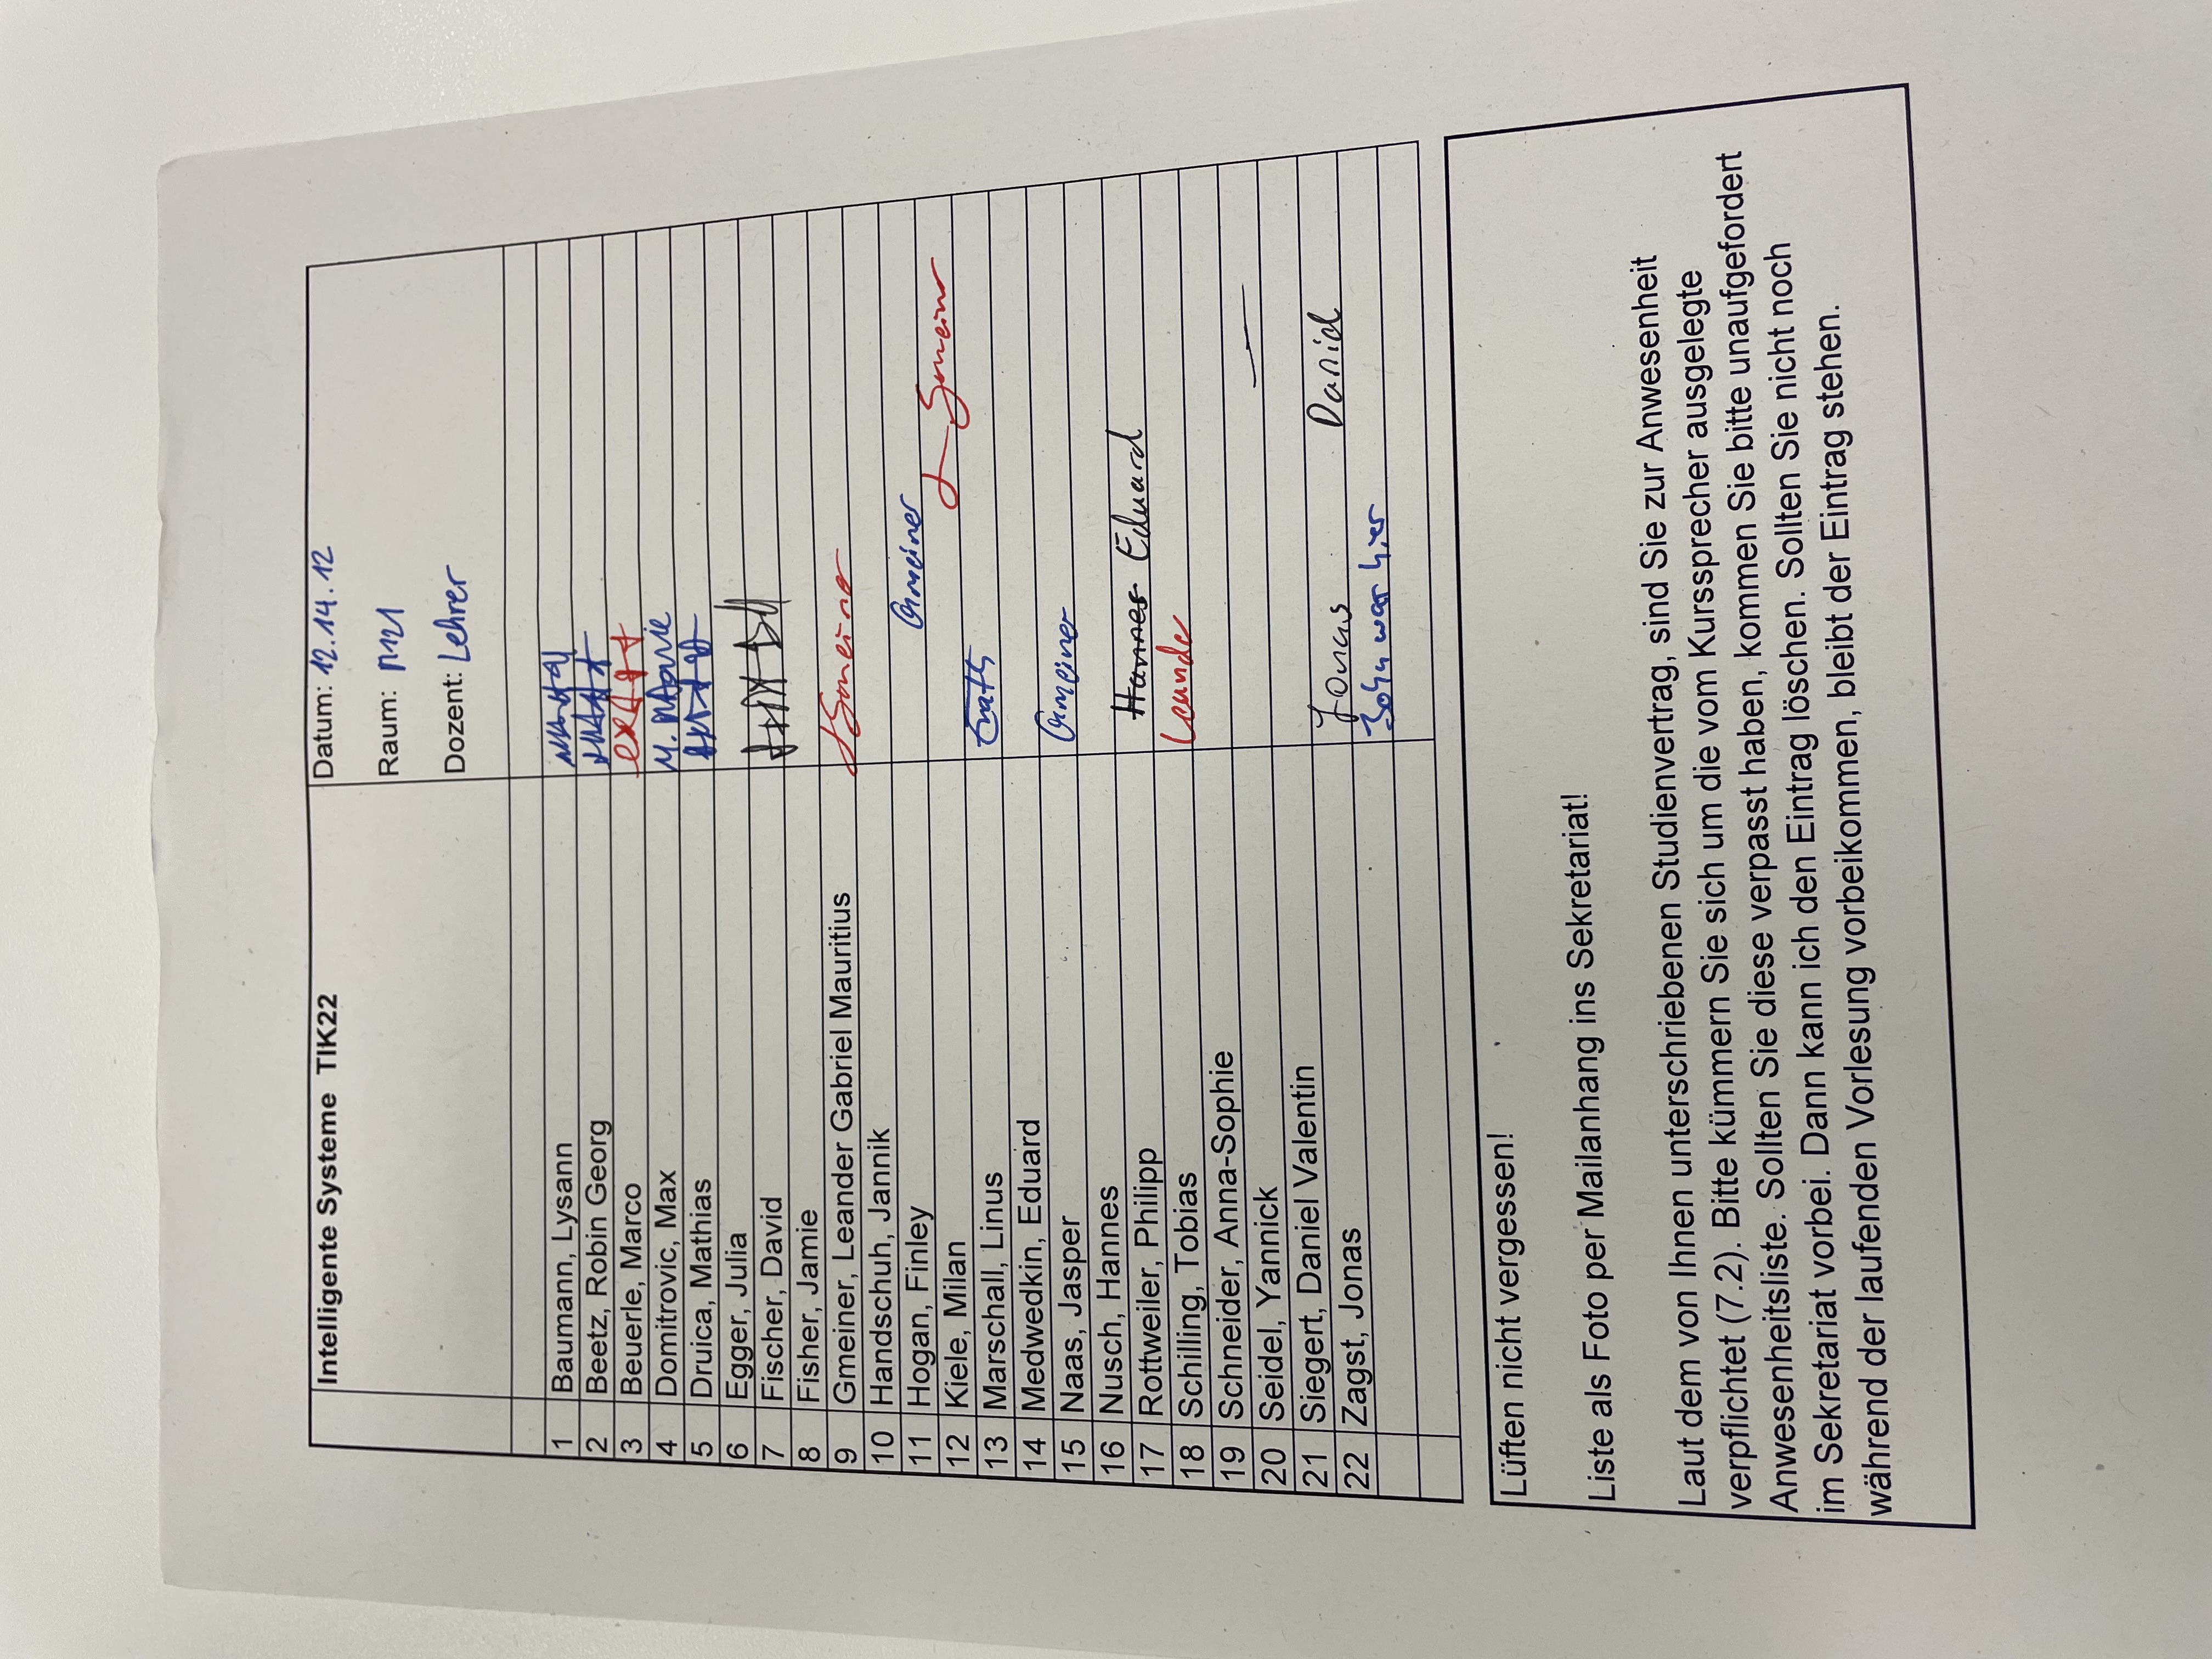 Intelligente Systeme TIK22
Datum: 12.14.12
Raum: M121
Dozent: Lehrer
1 Baumann, Lysann
2 Beetz, Robin Georg
3 Beuerle, Marco
4 Domitrovic, Max M.
5 Druica, Mathias
6 Egger, Julia
7 Fischer, David
8 Fisher, Jamie
9 Gmeiner, Leander Gabriel Mauritius Gmeiner
10 Handschuh, Jannik
11 Hogan, Finley Gmeiner
12 Kiele, Milan L Gmeiner
13 Marschall, Linus
14 Medwedkin, Eduard
15 Naas, Jasper Gmeiner
16 Nusch, Hannes
17 Rottweiler, Philipp Hannes Eduard
18 Schilling, Tobias
19 Schneider, Anna-Sophie
20 Seidel, Yannick
21 Siegert, Daniel Valentin
22 Zagst, Jonas Jonas Daniel
war hier
Lüften nicht vergessen!
Liste als Foto per Mailanhang ins Sekretariat!
Laut dem von Ihnen unterschriebenen Studienvertrag, sind Sie zur Anwesenheit
verpflichtet (7.2). Bitte kümmern Sie sich um die vom Kurssprecher ausgelegte
Anwesenheitsliste. Sollten Sie diese verpasst haben, kommen Sie bitte unaufgefordert
im Sekretariat vorbei. Dann kann ich den Eintrag löschen. Sollten Sie nicht noch
während der laufenden Vorlesung vorbeikommen, bleibt der Eintrag stehen.